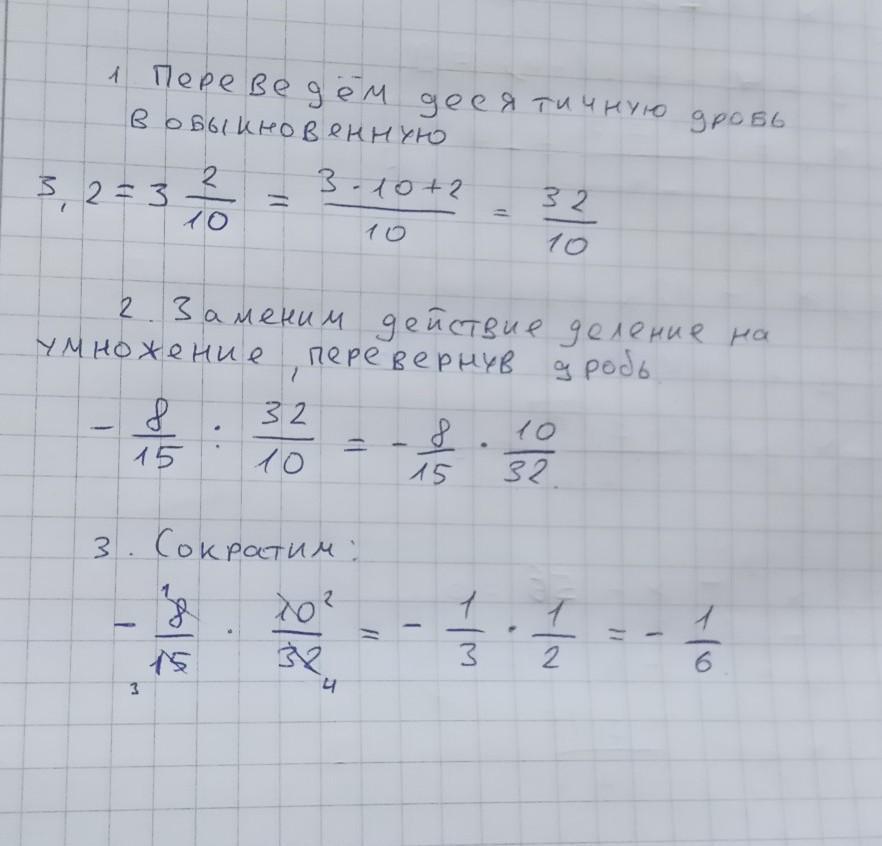 1 Переведём десятичную дробь
в обыкновенную
3,2 = 3 2/10 = 3·10+2/10 = 32/10
2. Заменим действие деление на
умножение, перевернув дробь
- 8/15 : 32/10 = - 8/15 · 10/32
3. Сократим:
- 8¹/15₃ · 10²/32₄ = - 1/3 · 1/2 = - 1/6